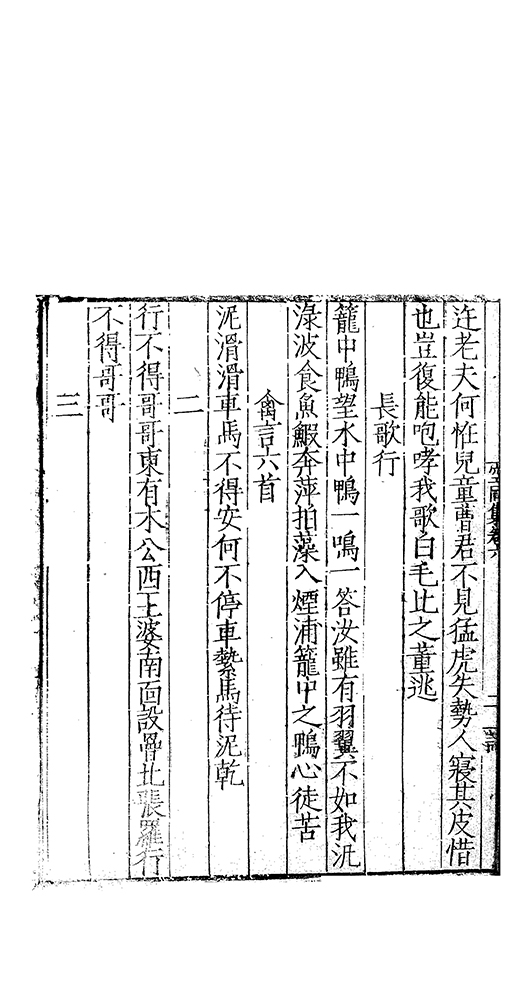 迕老夫何恠兒童曹君不見猛虎失勢人寢其皮惜
也豈復能咆哮我歌白毛比之董逃
長歌行
籠中鴨望水中鴨一鳴一答汝雖有羽翼不如我汎
淥波食魚鰕奔萍拍藻入煙浦籠中之鴨心徒苦
禽言六首
泥滑滑車馬不得安何不停車縶馬待泥乾
二
行不得哥哥東有木公西王婆南面設罾北張羅行
不得哥哥
三
集卷六
二